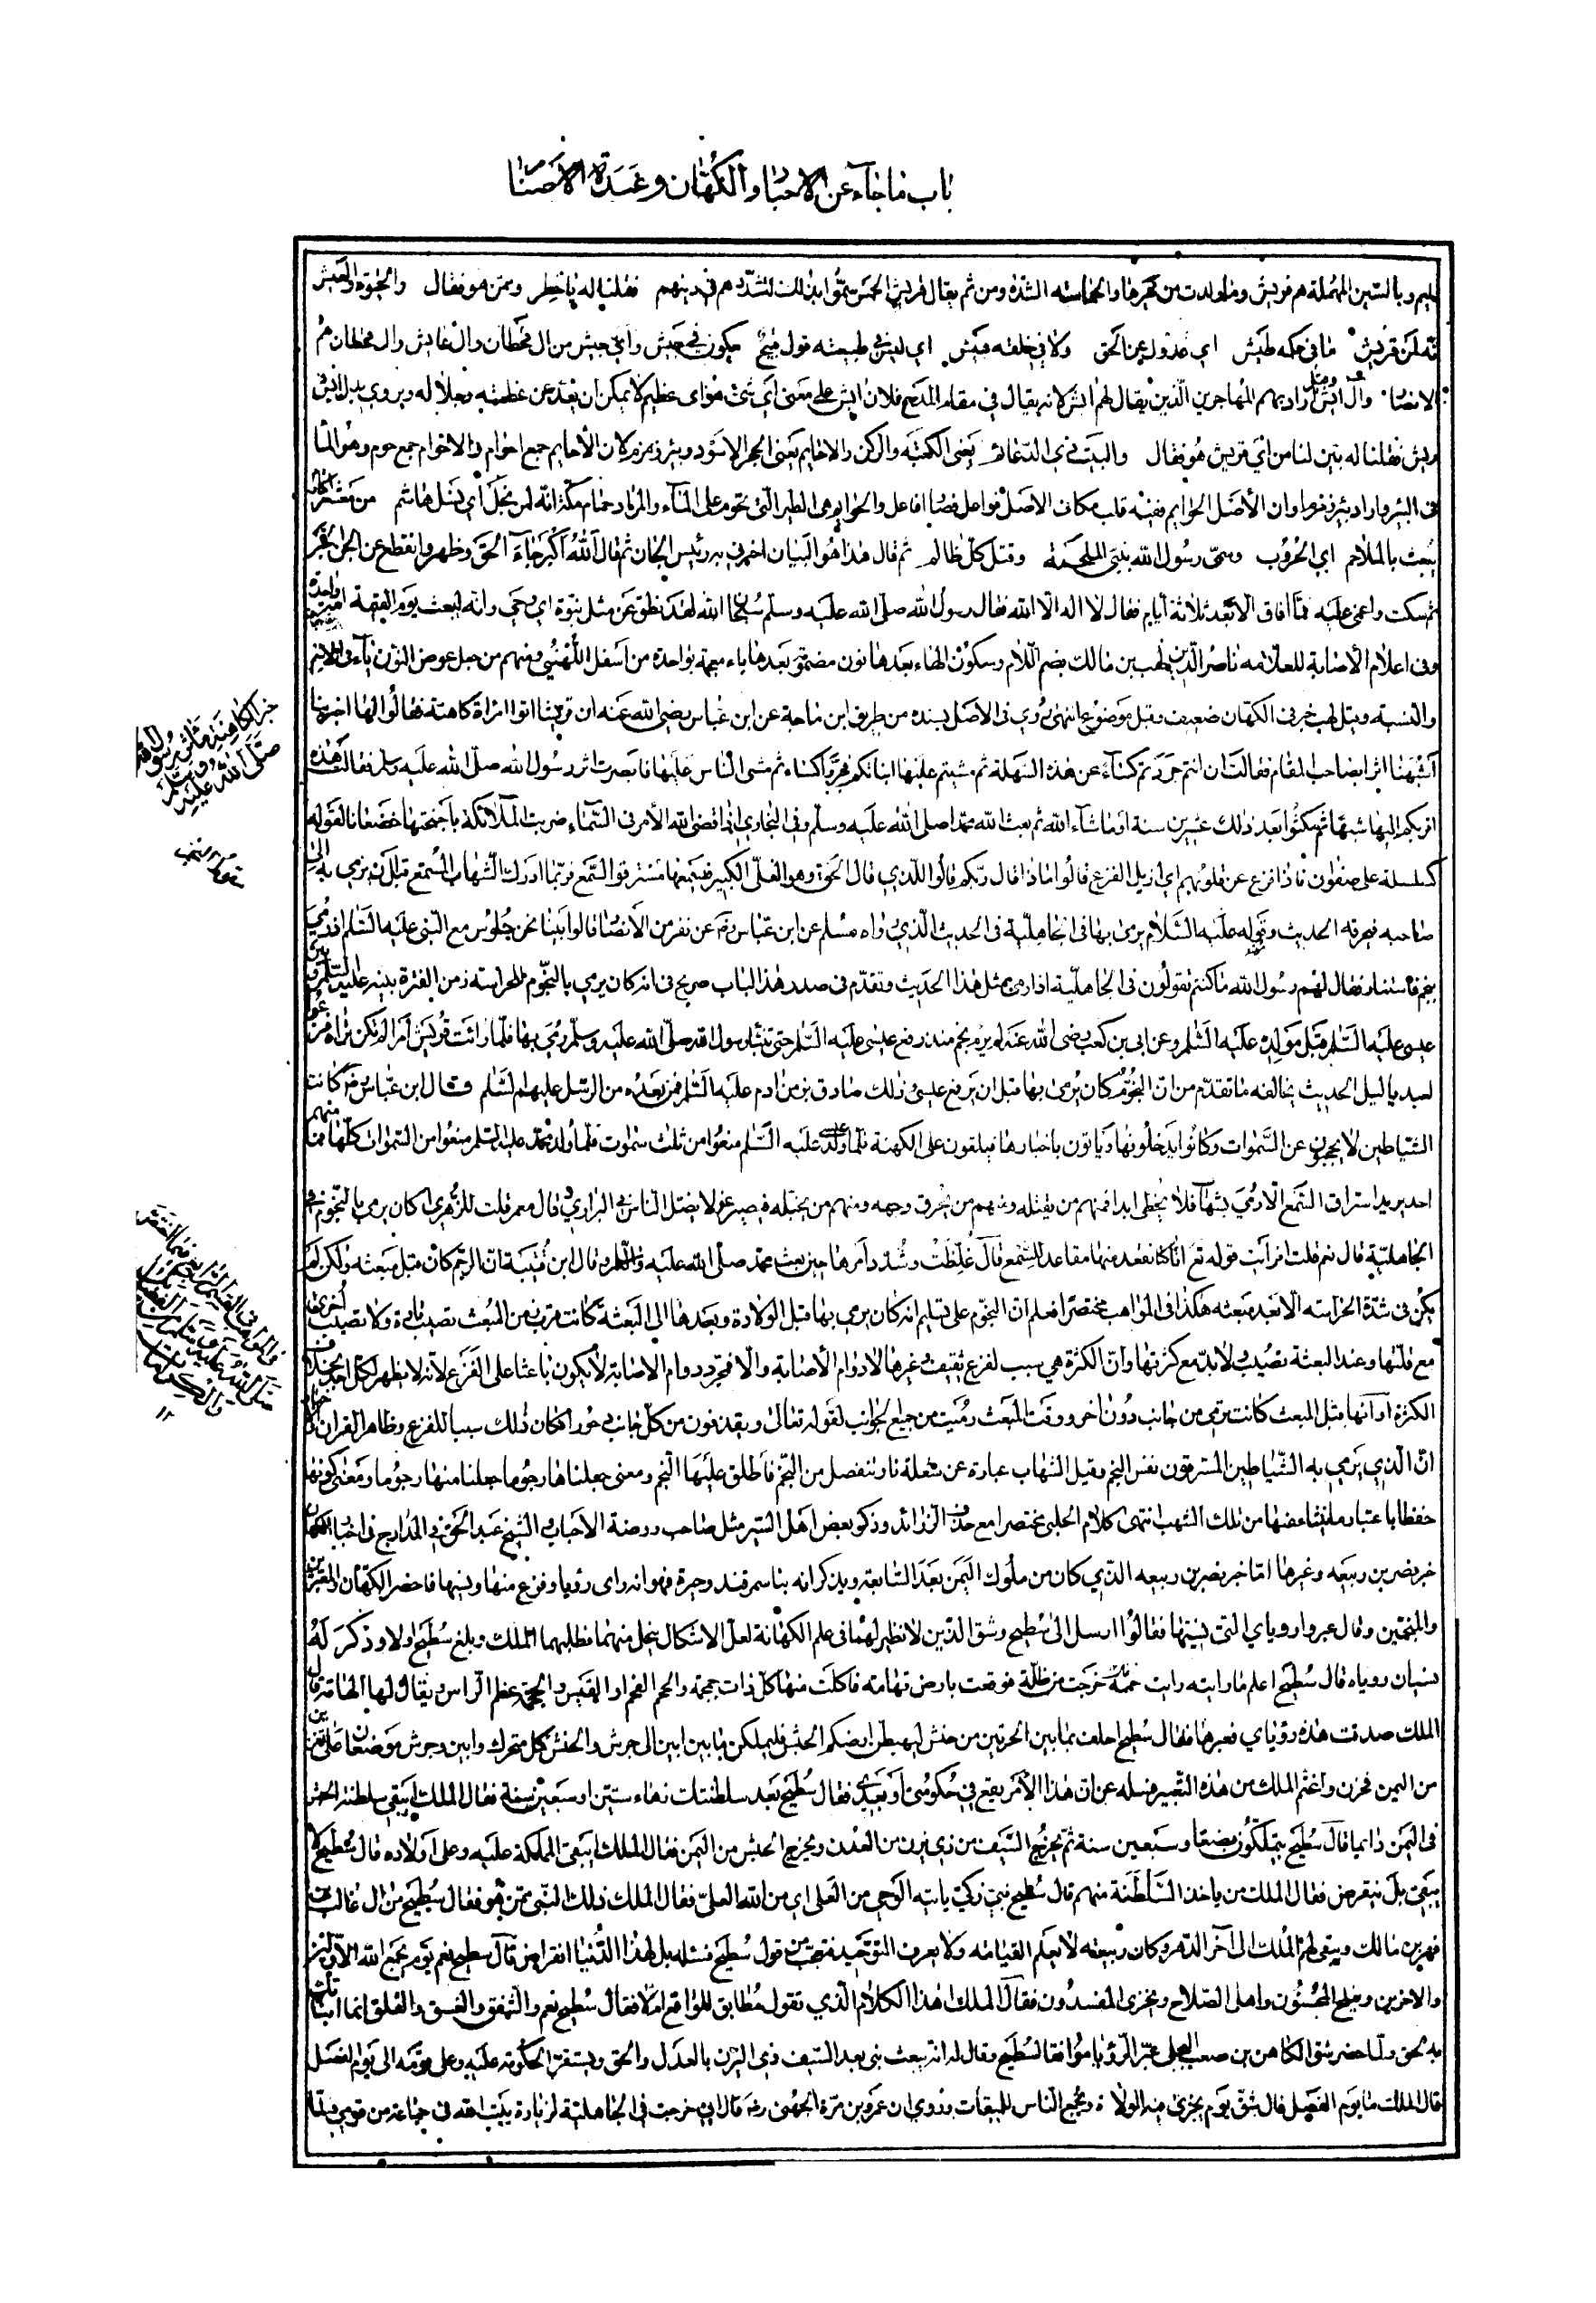 باب ما جاء عن الاحبار والكهان وعبدة الاصنام
بالسين المهملة هم قريش وما ولدت من غيرها والحماسة الشدة ومن ثم يقال لقريش الحمس سموا بذلك لتشددهم في دينهم فقلنا له يا خطر وممن هو فقال والحيوة والعيش
انه لمن قريش ما في حكمه طيش اي عدول عن الحق ولا في خلقه هيش اي ليس في طبيعته قول قبيح يكون في جيش واي جيش من ال قحطان وال عايش وال قحطان هم
الانصار وال ايش وقيل اراد بهم المهاجرين الذين يقال لهم ايش لانه يقال في مقام المدح فلان ايش على معنى اي شئ هو اي عظيم لا يمكن ان يعبر عن عظمته وجلاله ويروي بدل ايش
ريش فقلنا له بين لنا من اي قريش هو فقال والبيت ذي الدعائم يعني الكعبة والركن والاحايم يعني الحجر الاسود وبئر زمزم لان الاحايم جمع احوام والاحوام جمع حوم وهو الماء
في البئر واراد بئر زمزم او ان الأصل الحوايم ففيه قلب مكاني الاصل فواعل فصار افاعل والحوايم هي الطير التي تحوم على الماء والمراد حمام مكة انه لمن نجل اي نسل هاشم من معشر اكارم
يبعث بالملاحم اي الحروب وسمى رسول الله نبي الملحمة وقتل كل ظالم ثم قال هذا هو البيان اخبرني به رئيس الجان ثم قال الله اكبر جاء الحق وظهر وانقطع عن الجن الخبر
ثم سكت واغمى عليه فما افاق الا بعد ثلاثة أيام فقال لا اله الا الله فقال رسول الله صلى الله عليه وسلم سبحان الله لقد نطق عن مثل نبوة اي وحي وانه ليبعث يوم القيمة امة واحدة
وفي اعلام الأصابة للعلامة ناصر الدين لهب بن مالك بضم اللام وسكون الهاء بعدها نون مضمومة بعدها باء معجمة بواحدة من اسفل اللهبي ومنهم من جعل عوض النون ياء في الاسم
والنسبة وقيل لهب خبر في الكهان ضعيف وقيل موضوع انتهى روي في الاصل بسنده من طريق ابن ماجة عن ابن عباس رضي الله عنه ان قريشا اتوا امراة كاهنة فقالوا لها اخبرينا
اشبهنا اثرا بصاحب المقام فقالت ان انتم جررتم كساء عن هذه السهلة ثم مشيتم عليها انبأتكم فجروا كساء ثم مشى الناس عليها فابصرت اثر رسول الله صلى الله عليه وسلم فقالت هذه
اقربكم اليها شبها ثم مكثوا بعد ذلك عشرين سنة او ما شاء الله ثم بعث الله محمدا صلى الله عليه وسلم وفي البخاري اذا قضى الله الأمر في السماء ضربت الملائكة باجنحتها خضعانا لقوله
كسلسلة على صفوان فاذا فزع عن قلوبهم اي ازيل الفزع قالوا ماذا قال ربكم قالوا للذي قال الحق وهو العلي الكبير فيسمعها مسترقوا السمع فربما ادرك الشهاب المستمع قبل ان يرمي بها الى
صاحبه فيحرقه الحديث وقوله عليه السلام يرمى بها في الجاهلية في الحديث الذي رواه مسلم عن ابن عباس رضه عن نفر من الأنصار قالوا بينا نحن جلوس مع النبي عليه السلم اذ رمي
بنجم فاستنار فقال لهم رسول الله ما كنتم تقولون في الجاهلية اذا رمي بمثل هذا الحديث وتقدم في صدر هذا الباب صريح في انه كان يرمي بالنجوم للحراسة زمن الفترة بينه عليه السلم وبين
عيسى عليه السلم قبل مولده عليه السلم وعن ابي بن كعب رضى الله عنه لم يرم بنجم منذ رفع عيسى عليه السلم حتى تنبأ رسول الله صلى الله عليه وسلم رمي بها فلما رات قريش امرا لم تكن تراه فزعوا
لعبد ياليل الحديث يخالفه ما تقدم من ان النجوم كان يرمى بها قبل ان يرفع عيسى وذلك صادق بزمن ادم عليه السلم فمن بعده من الرسل عليهم السلم وقال ابن عباس رضه كانت
الشياطين لا يحجبون عن السموات وكانوا يدخلونها وياتون باخبارها فيلقون على الكهنة فلما ولد عيسى عليه السلم منعوا من ثلث سموات فلما ولد محمد عليه السلم منعوا من السموات كلها فما منهم
احد يريد استراق السمع الا رمي بشهاب فلا يخطى ابدا فمنهم من يقتله ومنهم من يحرق وجهه ومنهم من يخبله فيصير غولا يضل الناس في البراري وقال معمر قلت للزهري اكان يرمي بالنجوم في
الجاهلية قال نعم قلت افرايت قوله تع انا كنا نقعد منها مقاعد للسمع قال غلظت وشدد امرها حين بعث محمد صلى الله عليه وسلم وقال ابن قتيبة ان الرجم كان قبل مبعثه ولكن لم
يكن في شدة الحراسة الا بعد مبعثه هكذا في المواهب مختصرا فعلم ان النجوم على تسليم انه كان يرمي بها قبل الولادة وبعدها الى البعثة كانت قرب زمن المبعث تصيب تارة ولا تصيب اخرى
مع قلتها وعند البعثة تصيب ولا بد مع كثرتها وان الكثرة هي سبب لفزع ثقيف وغيرها لا دوام الأصابة والا فمجرد دوام الاصابة لا يكون باعثا على الفزع لانه لا يظهر لكل احد بخلاف
الكثرة او انها قبل المبعث كانت ترمي من جانب دون اخر ووقت المبعث رميت من جميع الجوانب لقوله تعالى ويقذفون من كل جانب دحورا فكان ذلك سببا للفزع وظاهر القران
ان الذي يرمي به الشياطين المسترقون نفس النجم وقيل الشهاب عبارة عن شعلة نار تنفصل من النجم فاطلق عليها النجم ومعنى جعلناها رجوما جعلنا منها رجوما ومعنى كونها
حفظا باعتبار ما ينشأ عنها من تلك الشهب انتهى كلام الحلبي مختصرا مع حذف الزوائد وذكر بعض اهل السير مثل صاحب روضة الاحباب والشيخ عبد الحق في المدارج في اخبار الكهان
خبر نصر بن ربيعه وغيرها اما خبر نصر بن ربيعه الذي كان من ملوك اليمن بعد التبابعة ويذكر انه بنا سمرقند وحيرة فهو انه راى رؤيا وفزع منها ونسيها فاحضر الكهان والمعبرين
والمنجمين وقال عبروا روياي التي نسيتها فقالوا ارسل الى سطيح وشق الذين لا نظير لهما في علم الكهانة لعل الاشكال ينحل منهما فطلبهما الملك وبلغ سطيح اولا وذكر له
نسيان روياه قال سطيح اعلم ما رايته رايت حممة خرجت من ظلمة فوقعت بارض تهامة فاكلت منها كل ذات جمجمة والحمم الفحم او القبس والجمجمة عظم الراس ويقال لها الهامة قال
الملك صدقت هذه رؤياي فعبرها فقال سطيح احلف بما بين الحرتين من حنش ليهبطن ارضكم الحبش فليملكن ما بين ابين الى جرش والحنش كل متحرك وابين وجرش موضعان
من اليمن فحزن واغتم الملك من هذه التعبير فسئله عن ان هذا الأمر يقع في حكومتي او بعدي فقال سطيح بعد سلطنتك زهاء ستين او سبعين سنة فقال الملك ايبقى سلطنة الحبش
في اليمن دائما قال سطيح يتملكون بضعا وسبعين سنة ثم يخرج السيف من ذي يزن من العدن ويخرج الحبش من اليمن فقال الملك ايبقى المملكة عليه وعلى اولاده قال سطيح لا
يبقى بل ينقرض فقال الملك من ياخذ السلطنة منهم قال سطيح نبي زكي ياتيه الوحي من العلى اي من الله العلي فقال الملك ذلك النبي ممن هو فقال سطيح من ال غالب بن
فهر بن مالك ويبقى لهم الملك الى آخر الدهر وكان ربيعة لا يعلم القيامة ولا يعرف التوحيد فتعجب من قول سطيح فسئله هل لهذا الدنيا انقراض قال سطيح نعم يوم يجمع الله الاولين
والاخرين ويفلح المحسنون واهل الصلاح ويخزى المفسدون فقال الملك اهذا الكلام الذي تقول مطابق للواقع ام لا فقال سطيح نعم والشفق والغسق والفلق انما انباتك
به لحق ولما حضر شق الكاهن بن صعب البجلي عبر الرؤيا موافقا لسطيح وقال له انه يبعث نبي بعد السيف ذي اليزن بالعدل والحق ويستقر الحكومة عليه وعلى قومه الى يوم الفصل
قال الملك ما يوم الفصل قال شق يوم يجزى فيه الولاة ويجمع الناس للميقات وروي ان عمرو بن مرة الجهني رضه قال اني خرجت في الجاهلية لزيارة بيت الله في جماعة من قومي فلما
خبر الكاهنة
صلى الله عليه وسلم